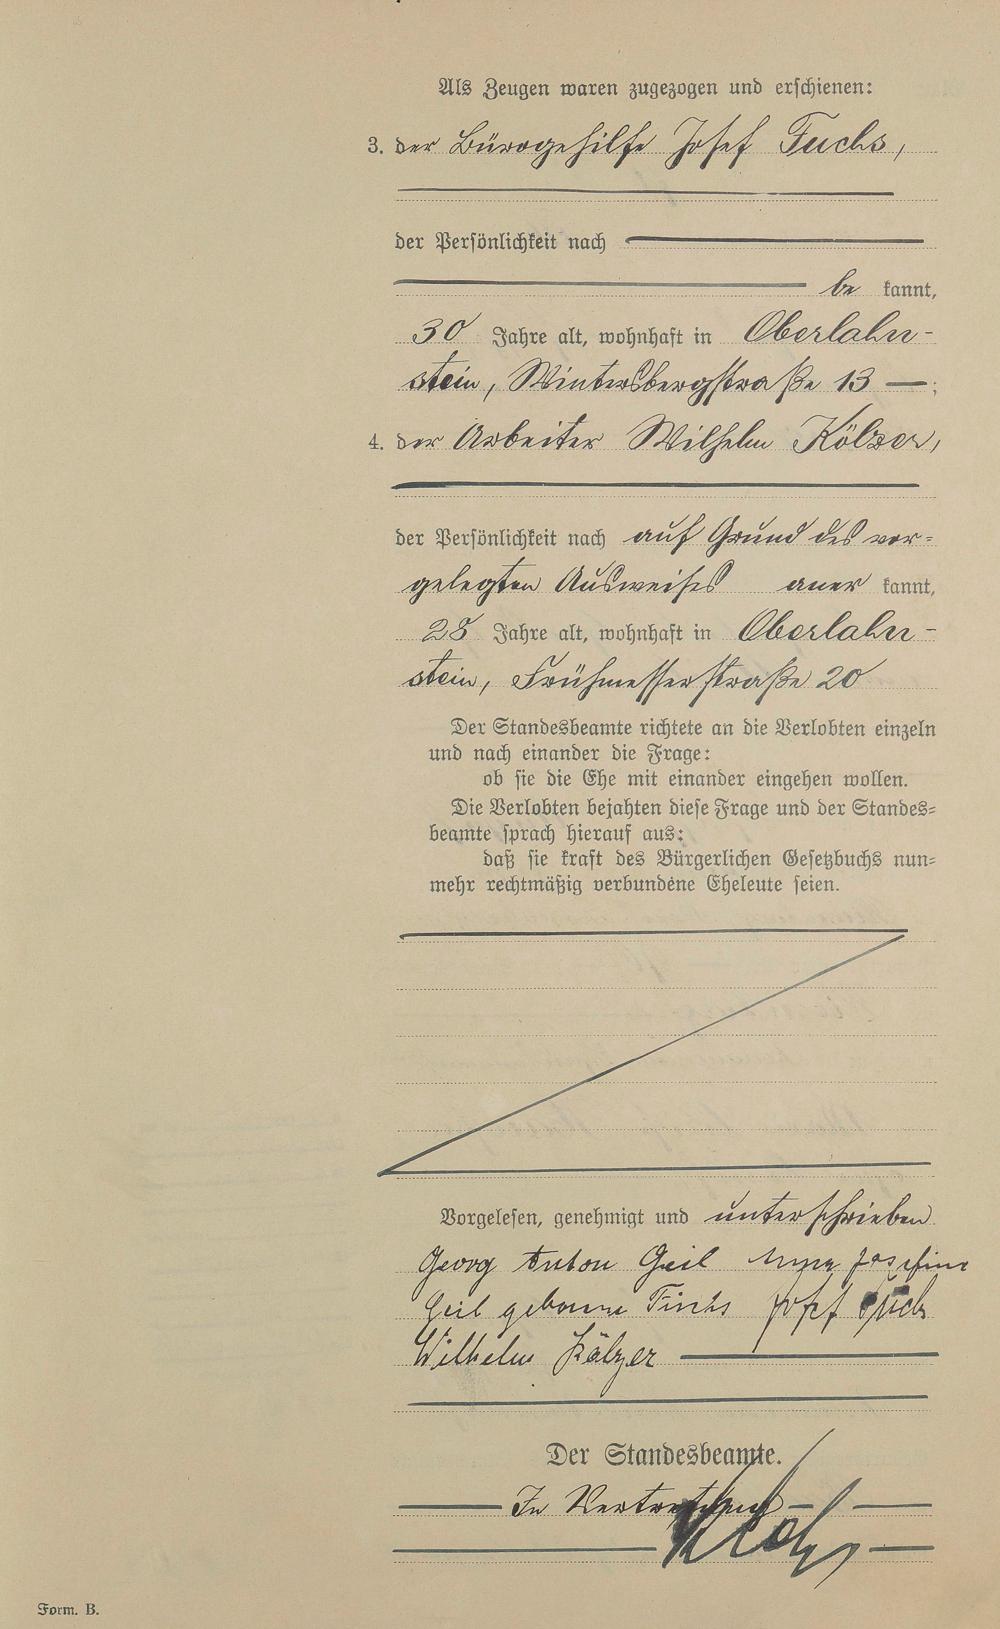 Als Zeugen waren zugezogen und erschienen:
3. der Bürogehilfe Josef Fuchs,
der Persönlichkeit nach
be kannt,
30 Jahre alt, wohnhaft in Oberlahn-
stein, Wintersbergstraße 13 — ;
4. der Arbeiter Wilhelm Kölzer,
der Persönlichkeit nach auf Grund des vor-
gelegten Ausweises aner kannt,
28 Jahre alt, wohnhaft in Oberlahn-
stein, Frühmesserstraße 20
Der Standesbeamte richtete an die Verlobten einzeln
und nach einander die Frage:
ob sie die Ehe mit einander eingehen wollen.
Die Verlobten bejahten diese Frage und der Standes-
beamte sprach hierauf aus:
daß sie kraft des Bürgerlichen Gesetzbuchs nun-
mehr rechtmäßig verbundene Eheleute seien.
Vorgelesen, genehmigt und unterschrieben
Georg Anton Geil Anna Josefine
Geil geborene Fuchs Josef Fuchs
Wilhelm Kölzer
Der Standesbeamte.
In Vertretung
Form. B.